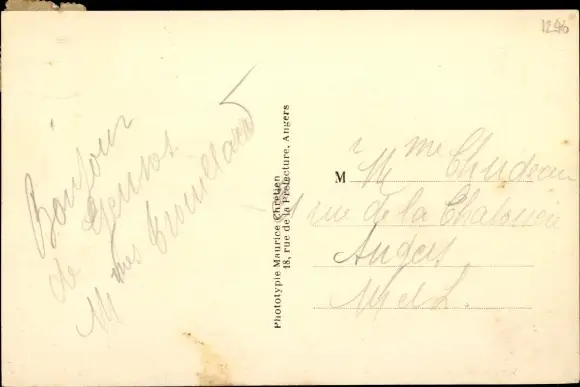 1246
Bonjour
de Gennes
Mmes Trouillard
Phototypie Maurice Chrétien
18, rue de la Préfecture, Angers
M
Mme Chudeau
rue de la Chalouère
Angers
M et L.